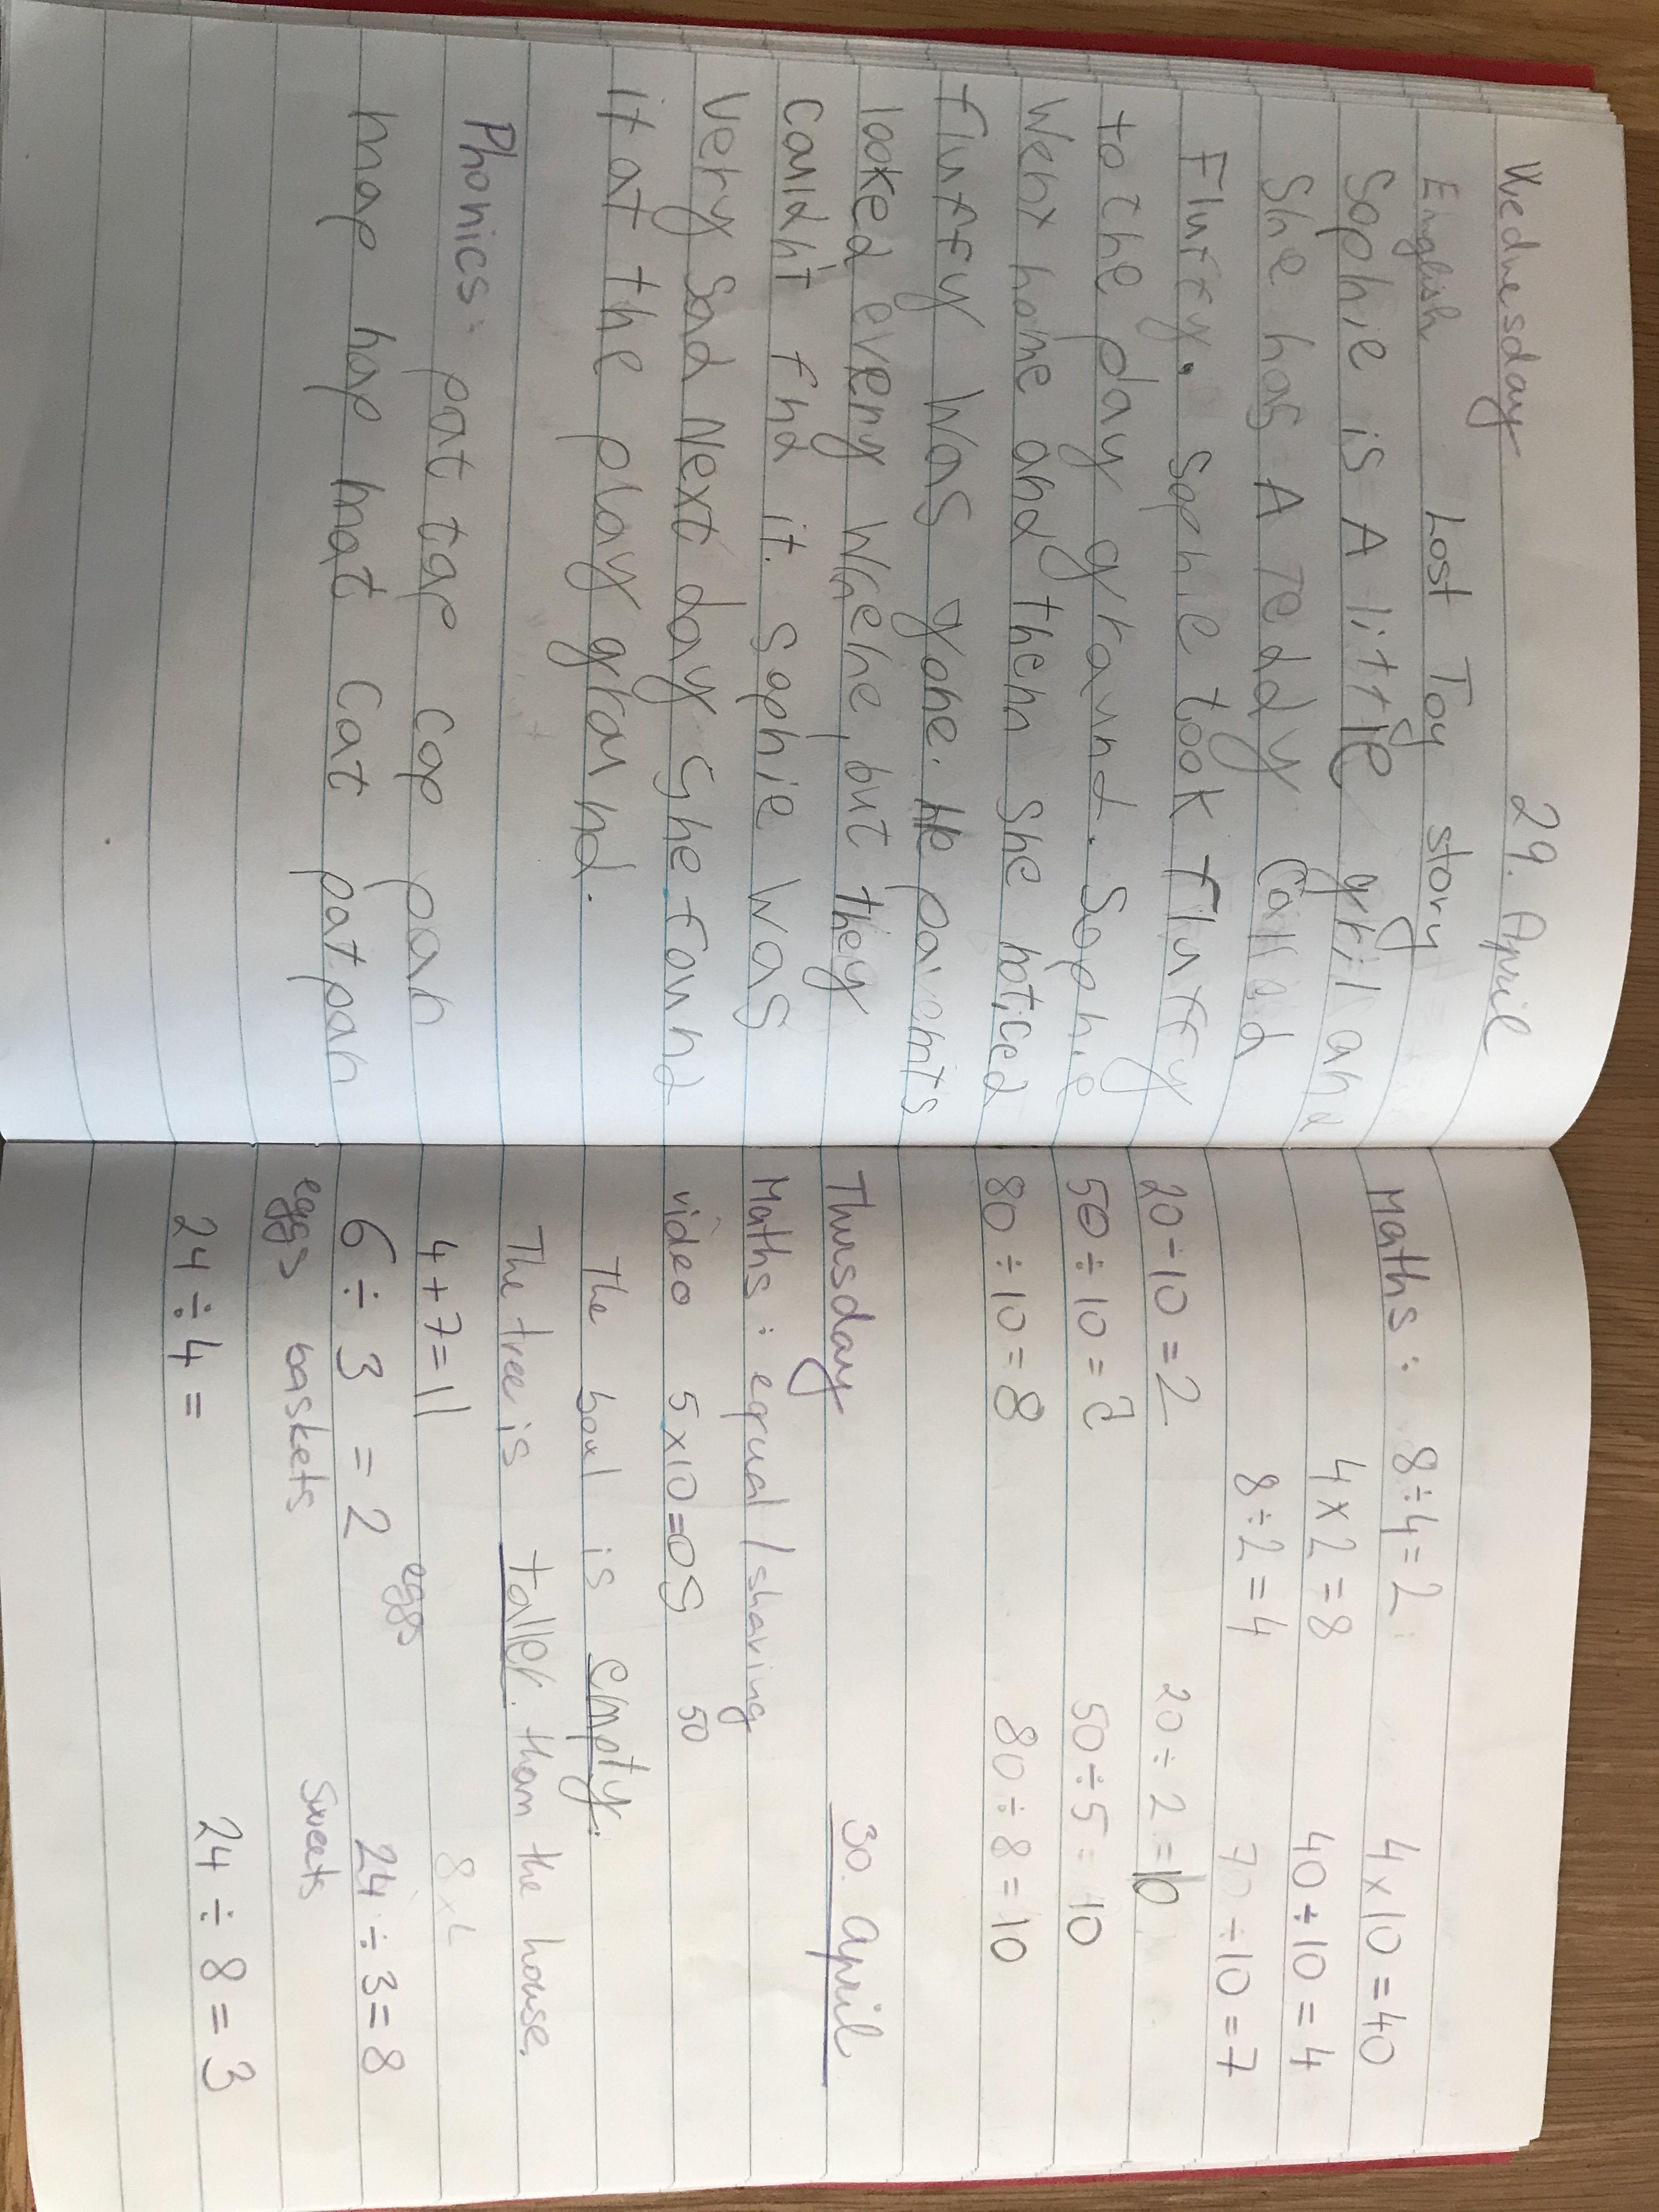 Wednesday 29. April
English Lost Toy story
Sophie is A little gril and
She has A Teddy Callad
Flurry. Sophie took Flurfy
to the play graund. Sophie
Went home and then she noticed
flurfy was gone. He paients
looked eveny Wrehe, but they
Cauldn't find it. Sophie was
very sad Next day she found
it at the play graund.
Phonics: pat tap cap pan
map hap mat Cat pat pan
Maths: 8÷4=2 4×10=40
4×2=8 40÷10=4
8÷2=4 70÷10=7
20÷10=2 20÷2=10
50÷10=5 50÷5=10
80÷10=8 80÷8=10
Thursday 30. April
Maths: equal / sharing
video 5×10=05 50
The boul is empty.
The tree is taller than the house.
4+7=11 8×
eggs
6÷3 = 2 24÷3=8
eggs baskets sweets
24÷4= 24÷8=3